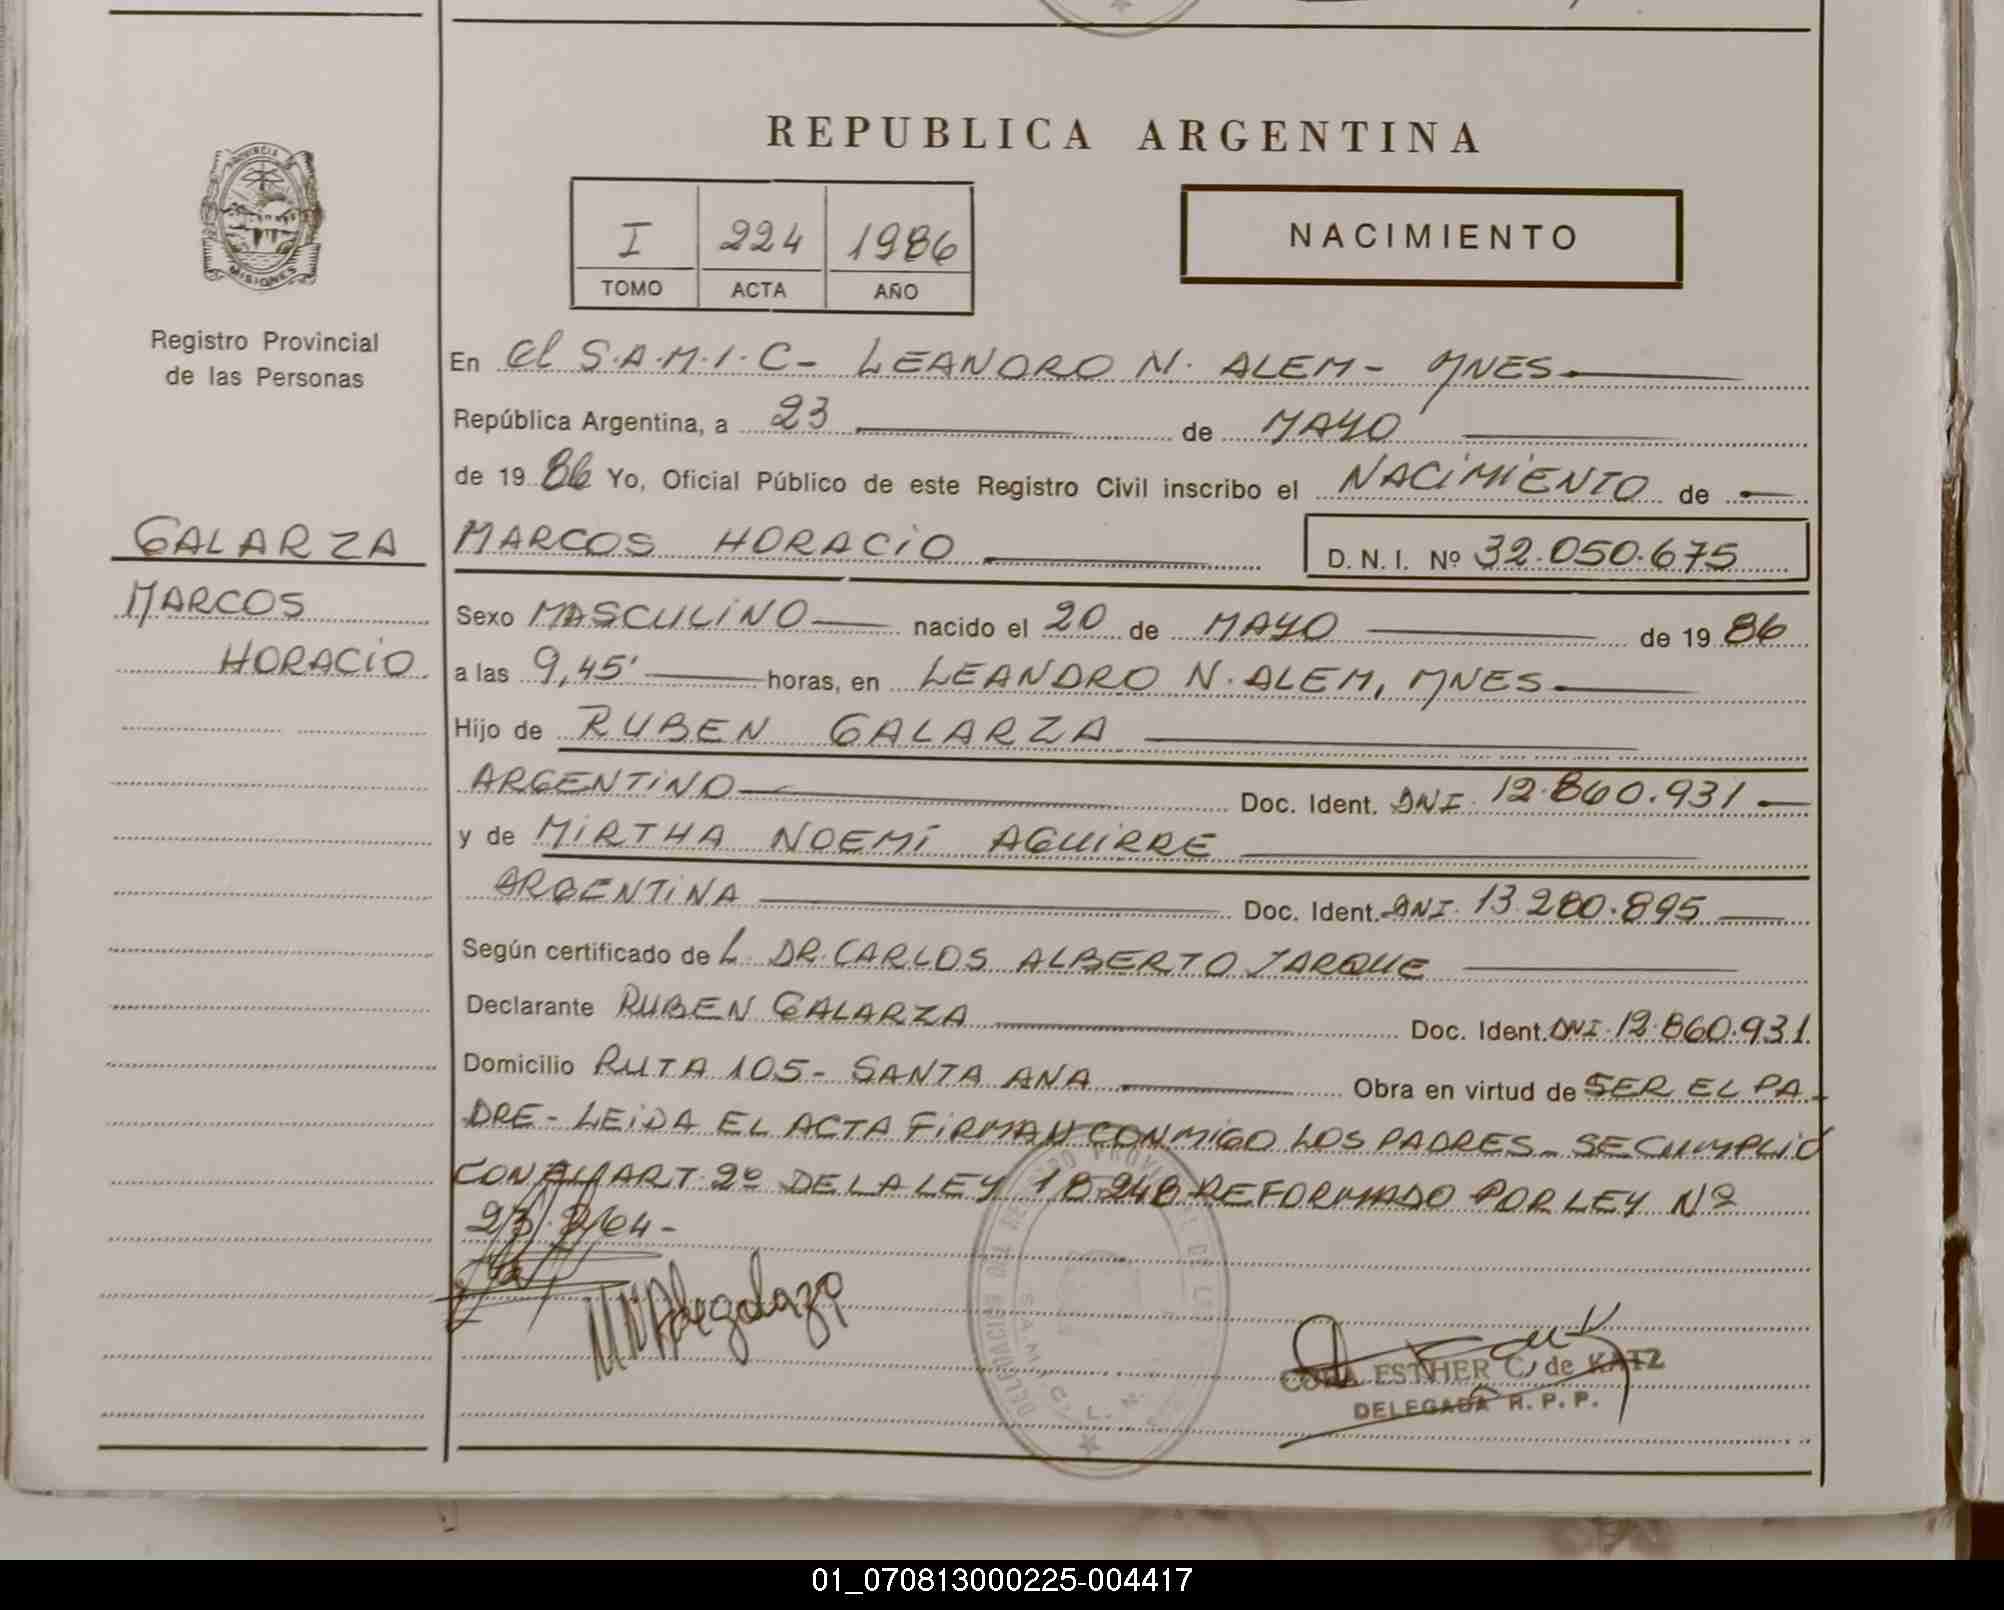 REPUBLICA ARGENTINA
PROVINCIA DE
MISIONES
I 224 1986
TOMO ACTA AÑO
NACIMIENTO
Registro Provincial
de las Personas
En el S.A.M.I.C- LEANDRO N. ALEM- MNES
República Argentina, a 23 de MAYO
de 19 86 Yo, Oficial Público de este Registro Civil inscribo el NACIMIENTO de
GALARZA
MARCOS
HORACIO
MARCOS HORACIO D. N. I. Nº 32.050.675
Sexo MASCULINO nacido el 20 de MAYO de 19 86
a las 9,45' horas, en LEANDRO N. ALEM, MNES
Hijo de RUBEN GALARZA
ARGENTINO Doc. Ident. DNI. 12.860.931
y de MIRTHA NOEMÍ AGUIRRE
ARGENTINA Doc. Ident. DNI. 13.280.895
Según certificado de L. DR. CARLOS ALBERTO JARQUE
Declarante RUBEN GALARZA Doc. Ident. DNI. 12.860.931.
Domicilio RUTA 105- SANTA ANA Obra en virtud de SER EL PA-
DRE- LEIDA EL ACTA FIRMAN CONMIGO LOS PADRES- SE CUMPLIÓ
CON EL ART. 2º DE LA LEY 18.248 REFORMADO POR LEY Nº
23.264-
CORA ESTHER C. de KATZ
DELEGADA R. P. P.
01_070813000225-004417